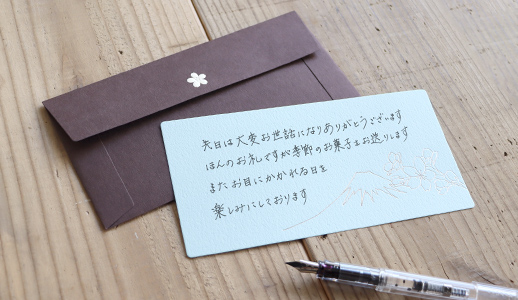 先日は大変お世話になりありがとうございます
ほんのお礼ですが季節のお菓子をお送りします
またお目にかかれる日を
楽しみにしております